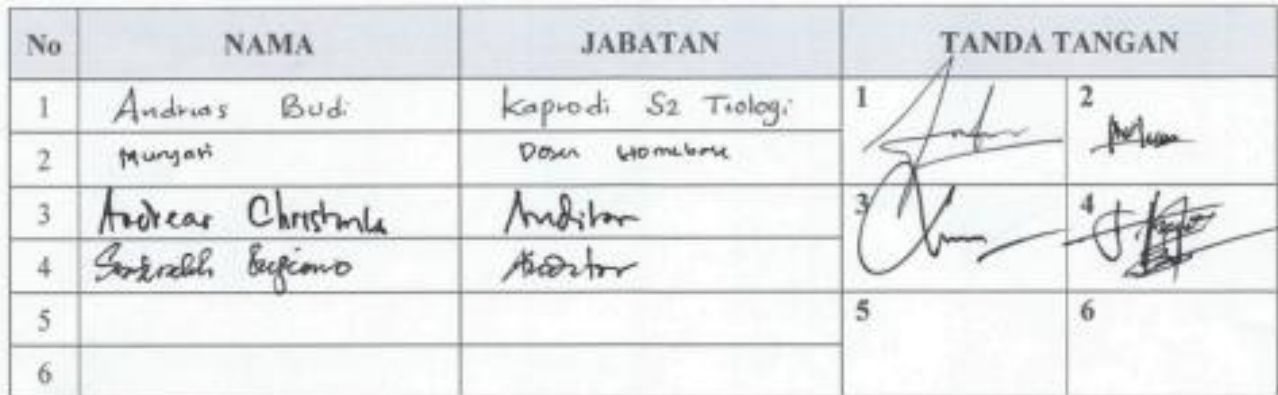 No NAMA JABATAN TANDA TANGAN
1 Andrias Budi Kaprodi S2 Tiologi 1 2
2 Munjari Dosen Homebase
3 Andreas Christanda Auditor 3 4
4 Sugiono Auditor
5 5 6
6